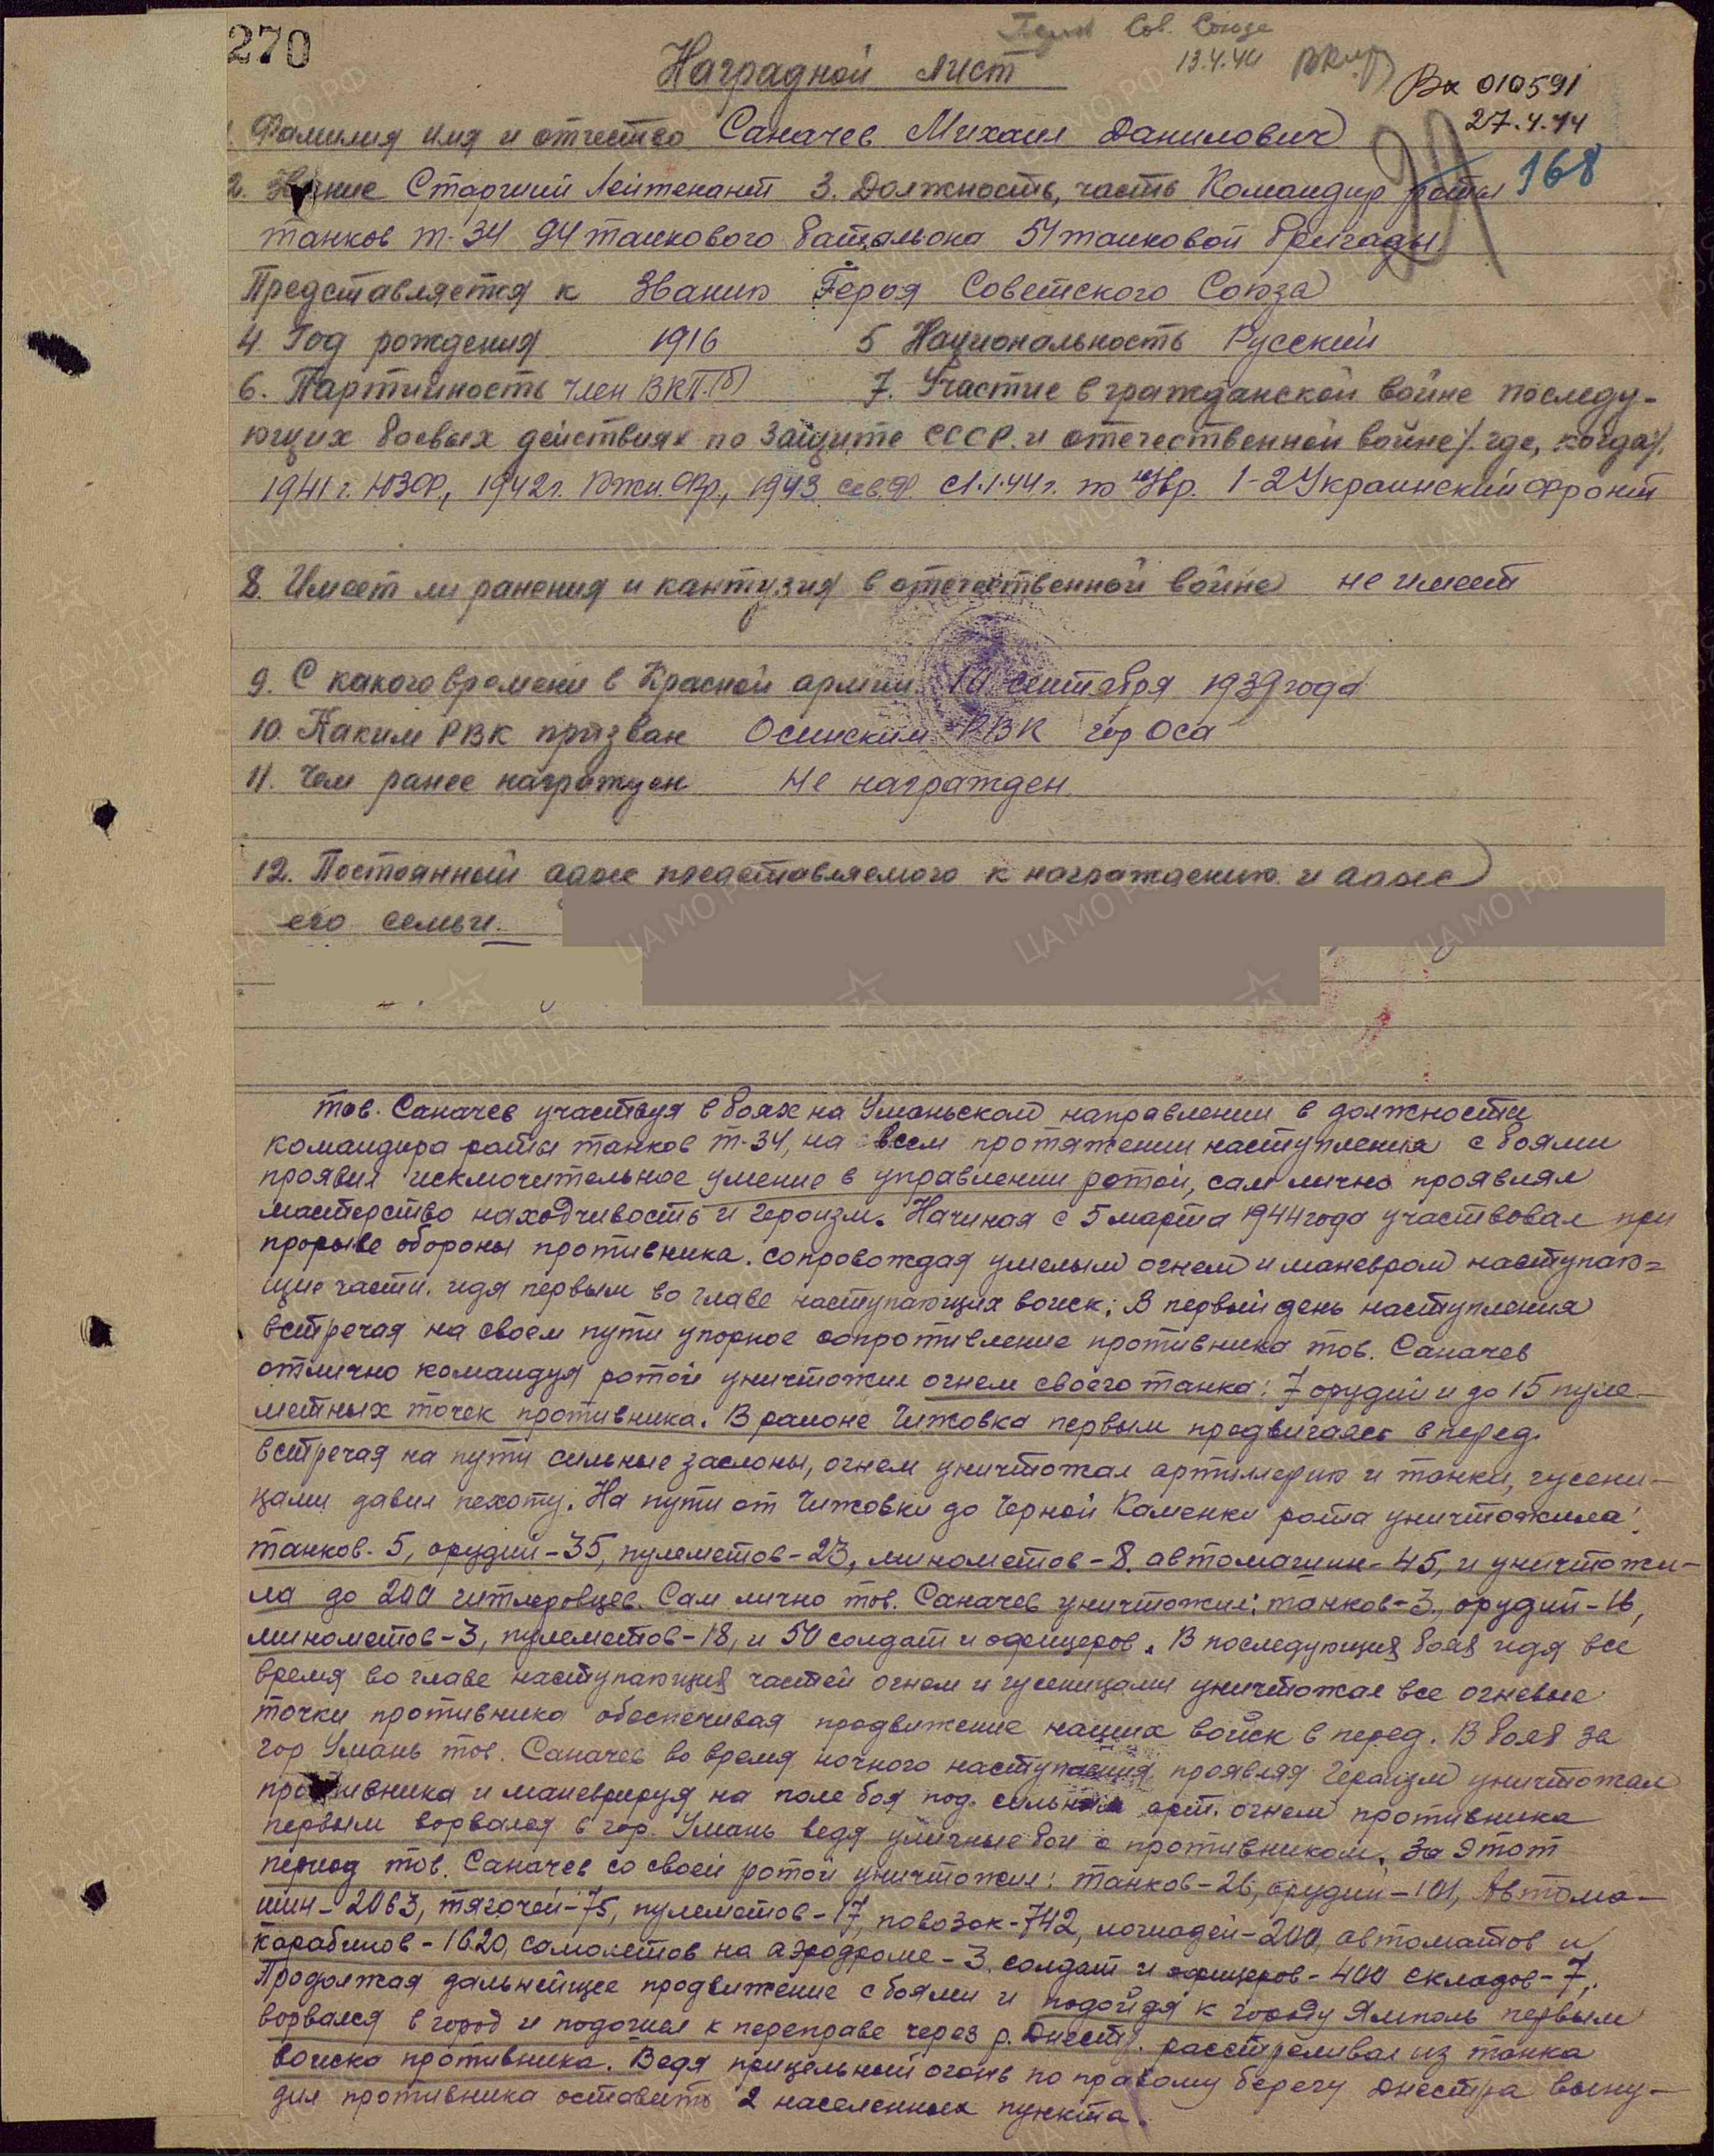 270
Сов. Союза
13.4.44
Наградной лист
Вх 010591
27.4.44
1. Фамилия имя и отчество Саначев Михаил Данилович
168
2. Звание Старший Лейтенант 3. Должность, часть Командир роты
танков Т-34 94 танкового батальона 51 танковой бригады
Представляется к Званию Героя Советского Союза
4. Год рождения 1916 5 Национальность Русский
6. Партийность член ВКП(б) 7. Участие в гражданской войне последу-
ющих боевых действиях по защите СССР. и отечественной войне /. где, когда /.
1941 г. ЮЗФ, 1942 г. Южн. Фр., 1943 Сев.Ф. с 1.1.44 г. по 1-2 Украинский Фронт
8. Имеет ли ранения и кантузия в отечественной войне не имеет
9. С какого времени в Красной армии 10 сентября 1939 года
10. Каким РВК призван Осинским РВК гор Оса
11. Чем ранее награжден Не награжден
12. Постоянный адрес представляемого к награждению и адрес
его семьи.
тов. Саначев участвуя в боях на Уманьском направлении в должности
командира роты танков Т-34, на всем протяжении наступления с боями
проявил исключительное умение в управлении ротой, сам лично проявлял
мастерство находчивость и героизм. Начиная с 5 марта 1944 года участвовал при
прорыве обороны противника. сопровождая умелым огнем и маневром наступаю=
щие части. идя первым во главе наступающих войск; В первый день наступления
встречая на своем пути упорное сопротивление противника тов. Саначев
отлично командуя ротой уничтожил огнем своего танка: 7 орудий и до 15 пуле-
метных точек противника. В районе Чижовка первым продвигаясь вперед.
встречая на пути сильные заслоны, огнем уничтожал артиллерию и танки, гусени-
цами давил пехоту. На пути от Чижовки до Черной Каменки рота уничтожила:
танков-5, орудий-35, пулеметов-23, минометов-8. автомашин-45, и уничтожи-
ла до 200 гитлеровцев. Сам лично тов. Саначев уничтожил: танков-3, орудий-16,
минометов-3, пулеметов-18, и 50 солдат и офицеров. В последующих боях идя все
время во главе наступающих частей огнем и гусеницами уничтожал все огневые
точки противника обеспечивая продвижение наших войск в перед. В боях за
гор Умань тов. Саначев во время ночного наступления проявляя героизм уничтожал
противника и маневрируя на поле боя под. сильным арт. огнем противника
первым ворвался в гор. Умань ведя уличные бои с противником. За этот
период тов. Саначев со своей ротой уничтожил: танков-26, орудий-101, Автома-
шин-2063, тягочей-75, пулеметов-17, повозок-742, лошадей-200, автоматов и
карабинов-1620, самолетов на аэродроме-3. солдат и офицеров-400 складов-7.
Продолжая дальнейщее продвижение с боями и подойдя к городу Ямполь первым
ворвался в город и подошел к переправе через р. Днестр. расстреливал из танка
войска противника. Ведя прицельный огонь по правому берегу Днестра выну-
дил противника оставить 2 населенных пункта.